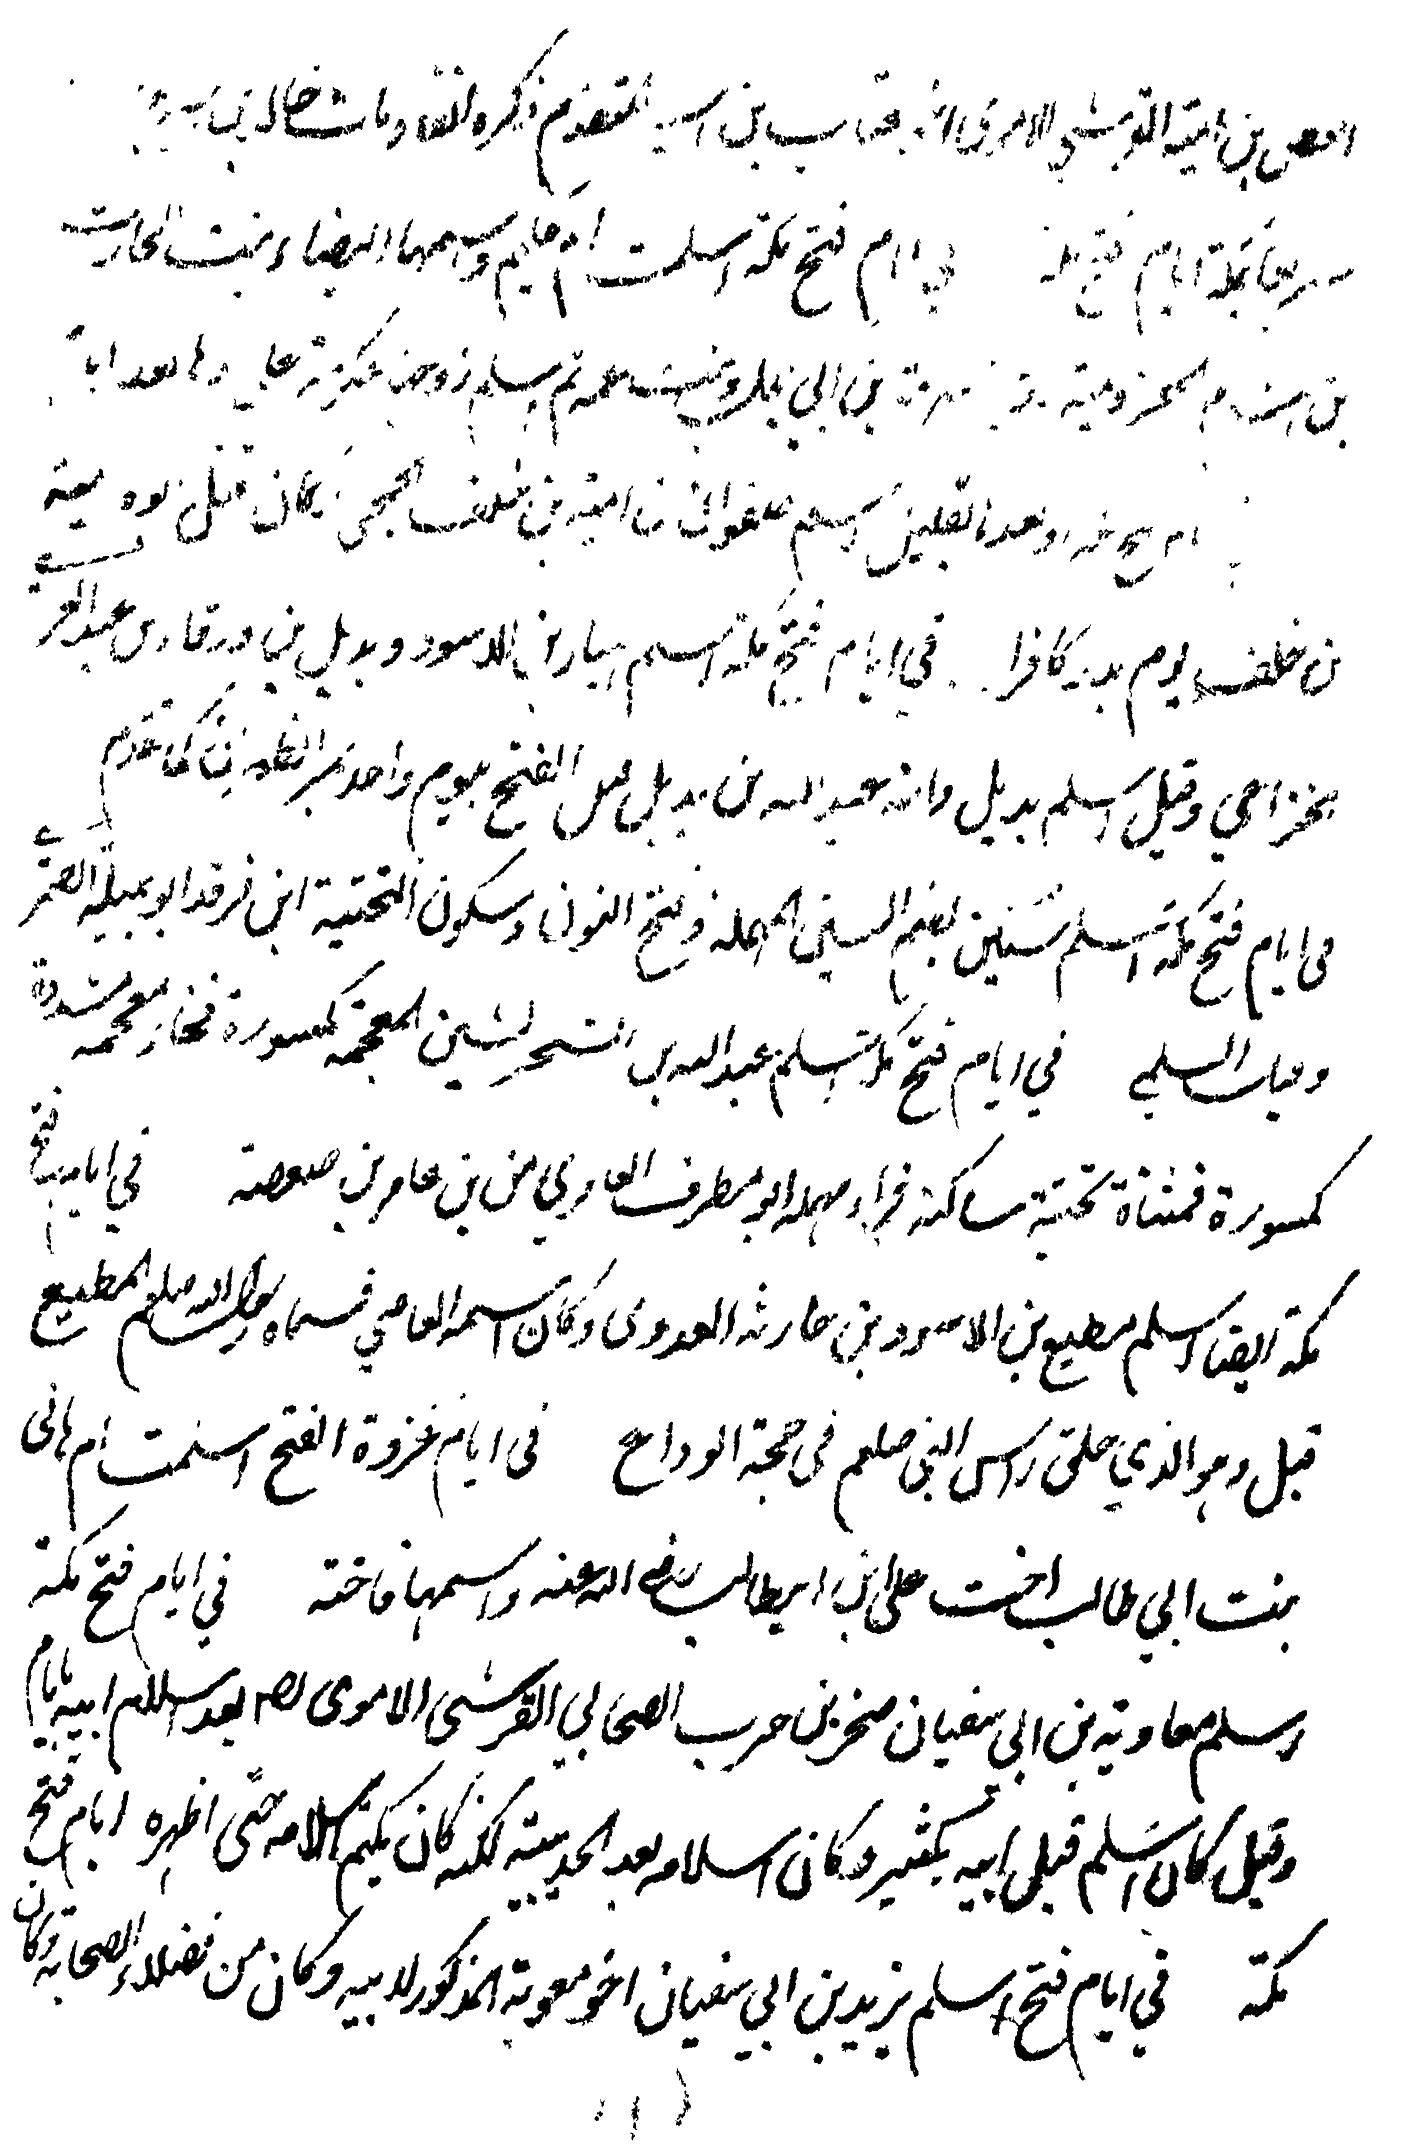 العيص بن امية القرشي الاموي اخو عتاب بن اسيد المتقدم ذكره انفا ومات خالد بن اسيد
ايام فتح مكة في ايام فتح مكة اسلمت ام حكيم واسمها البيضاء بنت الحارث
بن هشام المخزومية بن ابي جهل وبنت عمه ثم اسلم زوجها عكرمة بعد ايام
وبعدها بقليل اسلم صفوان بن امية بن خلف الجمحي وكان قتل ابوه امية
بن خلف يوم بدر كافرا في ايام فتح مكة اسلم هبار بن الاسود وبديل بن ورقاء بن عبد العزى
الخزاعي وقيل اسلم بديل وابنه عبد الله بن بديل قبل الفتح بيوم واحد بمر الظهران كما تقدم
في ايام فتح مكة اسلم سنين بضم السين المهملة وفتح النون وسكون التحتية ابن فرقد ابو جميلة الضمري
ويقال السلمي في ايام فتح مكة اسلم عبد الله بن الشخير بشين المعجمة مكسورة فخاء معجمه مشددة
مكسورة فمثناة تحتية ساكنه فراء مهمله ابو مطرف العامري من بن عامر بن صعصعة في ايام فتح
مكة ايضا اسلم مطيع بن الاسود بن حارثه العدوى وكان اسمه العاصي فسماه رسول الله صلعم المطيع
قيل وهو الذي حلق راس النبي صلعم في حجة الوداع في ايام غزوة الفتح اسلمت ام هانى
بنت ابي طالب اخت على ابن ابيطالب رضي الله عنه واسمها فاختة في ايام فتح مكة
اسلم معاوية بن ابي سفيان صخر بن حرب الصحابي القرشى الاموى بعد اسلام ابيه بايام
وقيل كان اسلم قبل ابيه بكثير وكان اسلامه بعد الحديبية لكنه كان يكتم اسلامه حتى اظهره ايام فتح
مكة في ايام فتح اسلم يزيد بن ابي سفيان اخو معوية المذكور لابيه وكان من فضلاء الصحابة وكان